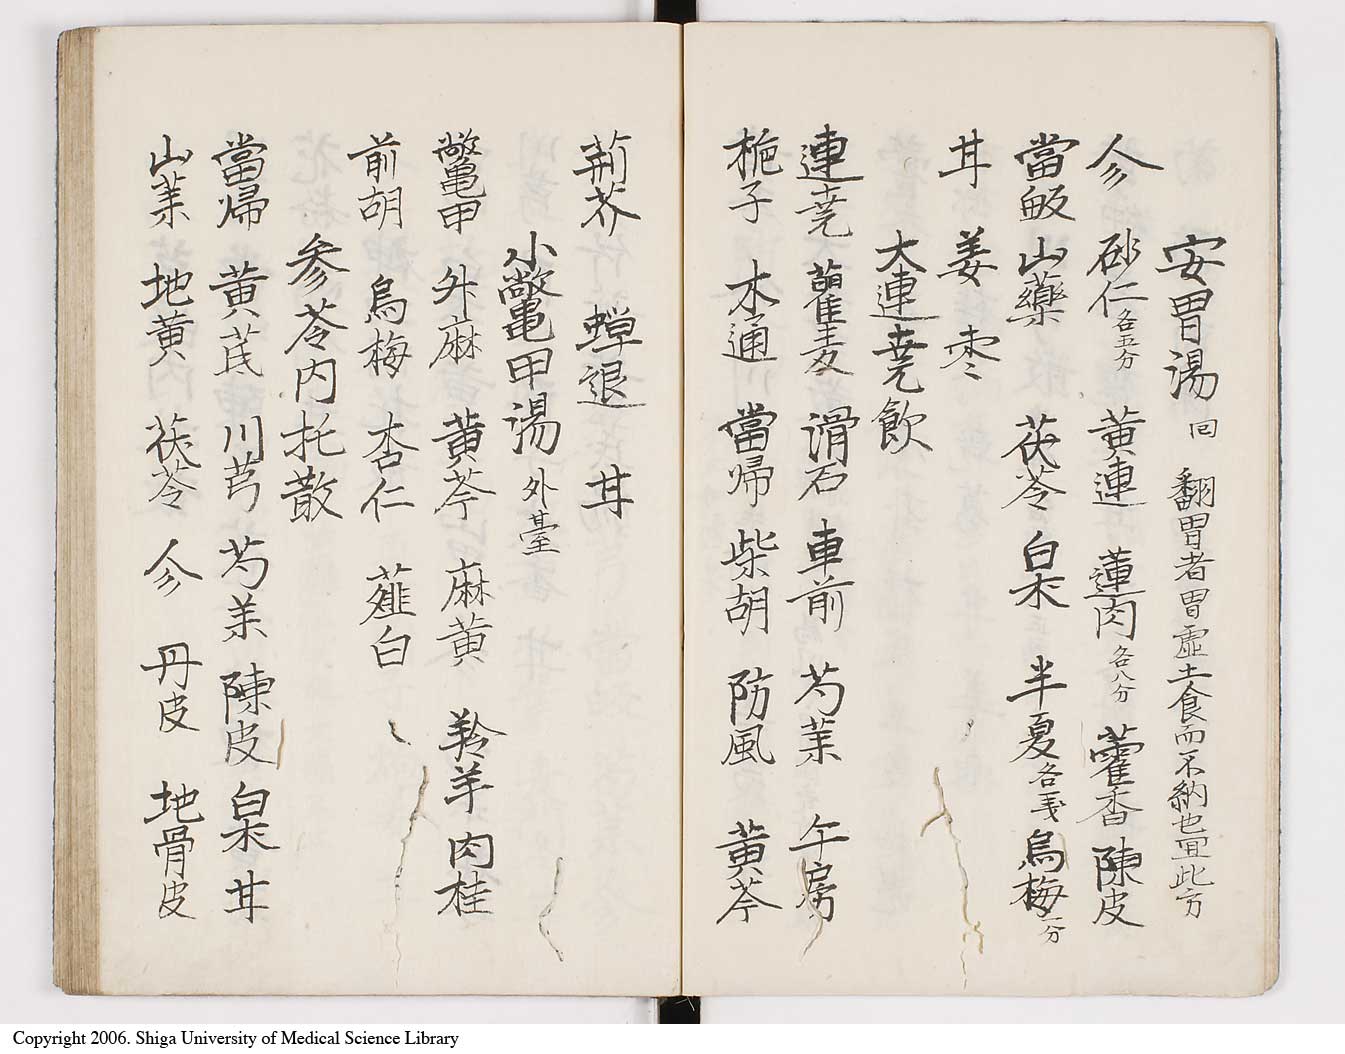 安胃湯 回 翻胃者胃虛土食而不納也宜此方
参 砂仁各五分 黄連 蓮肉各八分 藿香 陳皮
當皈 山藥 茯苓 白朮 半夏各戔 烏梅一分
甘 姜 枣
大連尭飲
連尭 瞿麦 滑石 車前 芍薬 午房
栀子 木通 當帰 柴胡 防風 黄芩
荊芥 蟬退 甘
小鱉甲湯 外臺
鱉甲 升麻 黄芩 麻黄 羚羊 肉桂
前胡 烏梅 杏仁 薤白
参苓内托散
當帰 黄芪 川芎 芍薬 陳皮 白朮 甘
山薬 地黄 茯苓 参 丹皮 地骨皮
Copyright 2006. Shiga University of Medical Science Library